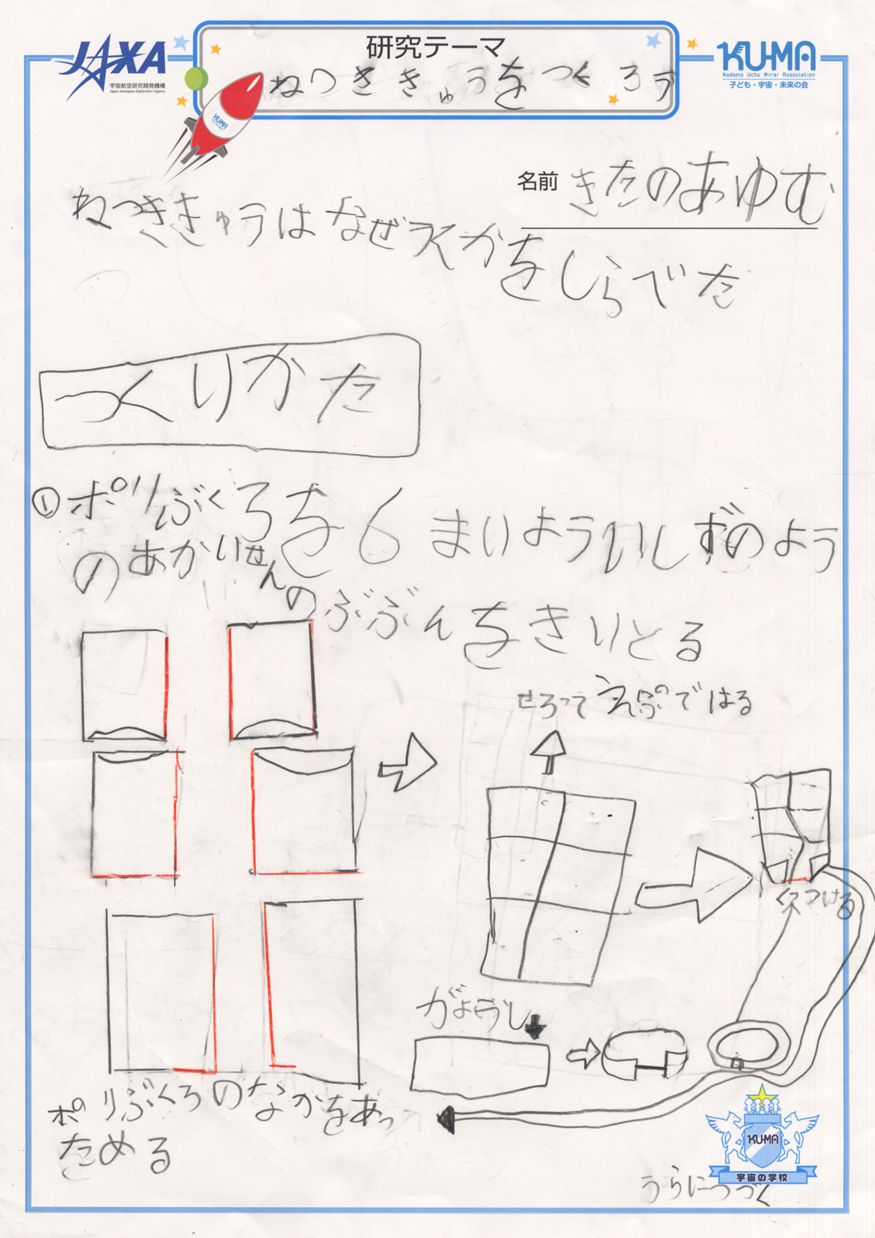 JAXA
宇宙航空研究開発機構
Japan Aerospace Exploration Agency
研究テーマ
ねつききゅうをつくろう
KUMA
Kodomo Uchu Mirai Association
子ども・宇宙・未来の会
KUMA
名前 きたのあゆむ
ねつききゅうはなぜうくかをしらべた
つくりかた
① ポリぶくろを6まいよういしずのよう
のあかいせんのぶぶんをきりとる
せろってえぷではる
つける
がようし
ポリぶくろのなかをあっ
ためる
KUMA
宇宙の学校
うらにつづく